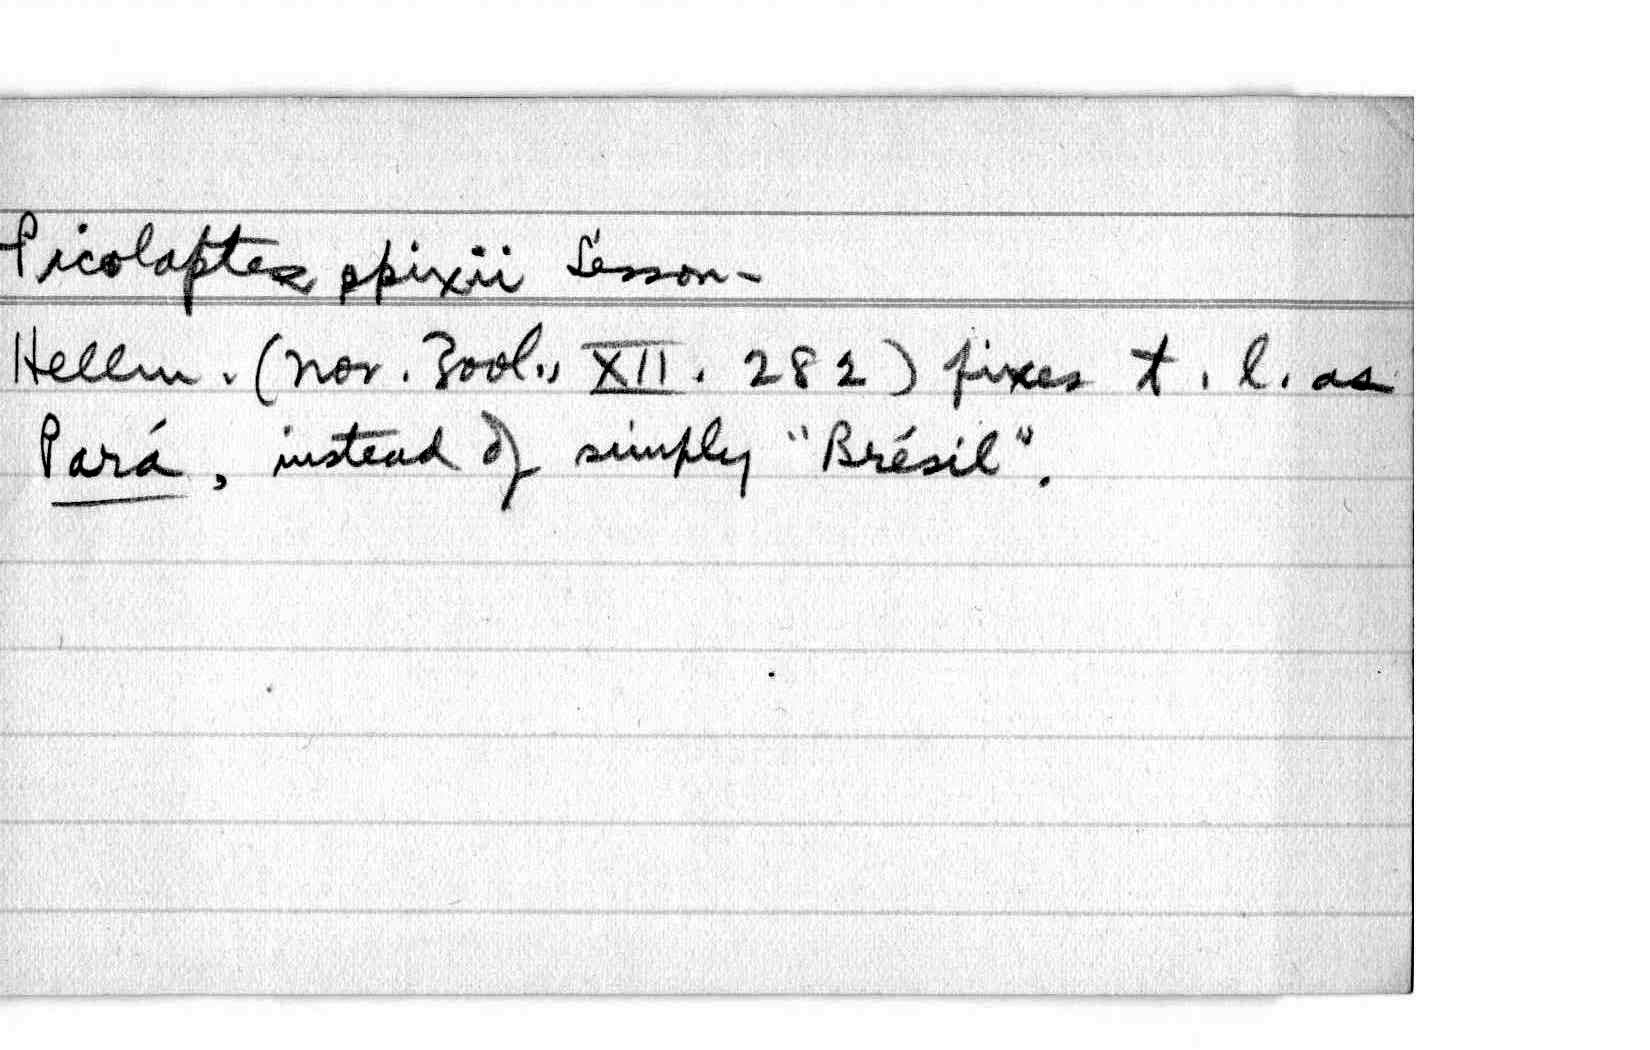 Picolaptes spixii Lesson-
Hellm. (Nov. Zool., XII. 282) fixes t. l. as
Pará, instead of simply "Brésil".